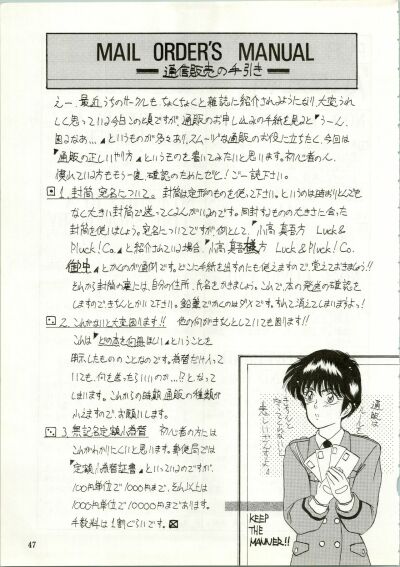 MAIL ORDER'S MANUAL
通信販売の手引き
えー、最近うちのサークルも なくなくと雑誌に紹介されるようになり大変うれ
しく思っている今日この頃ですが、通販のお申し込みの手紙を見ると『うーん、
困るなあ…』というものが多々あり、スムーズな通販のお役に立ちたく、今回は
『通販の正しいやり方』というものを書いてみたいと思います。初心者の人、
慣れている方ももう一度、確認のためにぜひ!ご一読下さい。
1. 封筒、宛名について。 封筒は定形のものを使って下さい。というのは時おりとんでも
なく大きい封筒で送ってくる人がいるのです。同封するもののたきさに合った
封筒を使いましょう。宛名についてですが、例として、『小高真吾方 Luck &
Pluck! Co.』と紹介されている場合、『小高真吾様方 Luck & Pluck! Co.
御中』とかくのが通例です。どこに手紙を出すのにも使えますので、覚えておきましょう!!
それから封筒の裏には、自分の住所、氏名をかきましょう。これで、本の発送の確認を
しますのできちんとかいて下さい。鉛筆でかくのはダメです。すれて消えてしまいますよっ!
2. これがないと大変困ります!! 他の何がきちんとしていても困ります!!
これは『どの本を何冊ほしい』ということを
明示したもののことなのです。為替だけ入って
いても、何を送ったらいいのか…!?となって
しまいます。これからの時期、通販の種類が
ふえますので、お願いします。
3. 無記名定額小為替 初心者の方には
これがわかりにくいと思います。郵便局では
『定額小為替証書』といっているのですが、
100円単位で1000円まで、それ以上は
1000円単位で10000円まであります。
手数料は1割ぐらいです。
通販は
KEEP
THE
MANNER!!
47